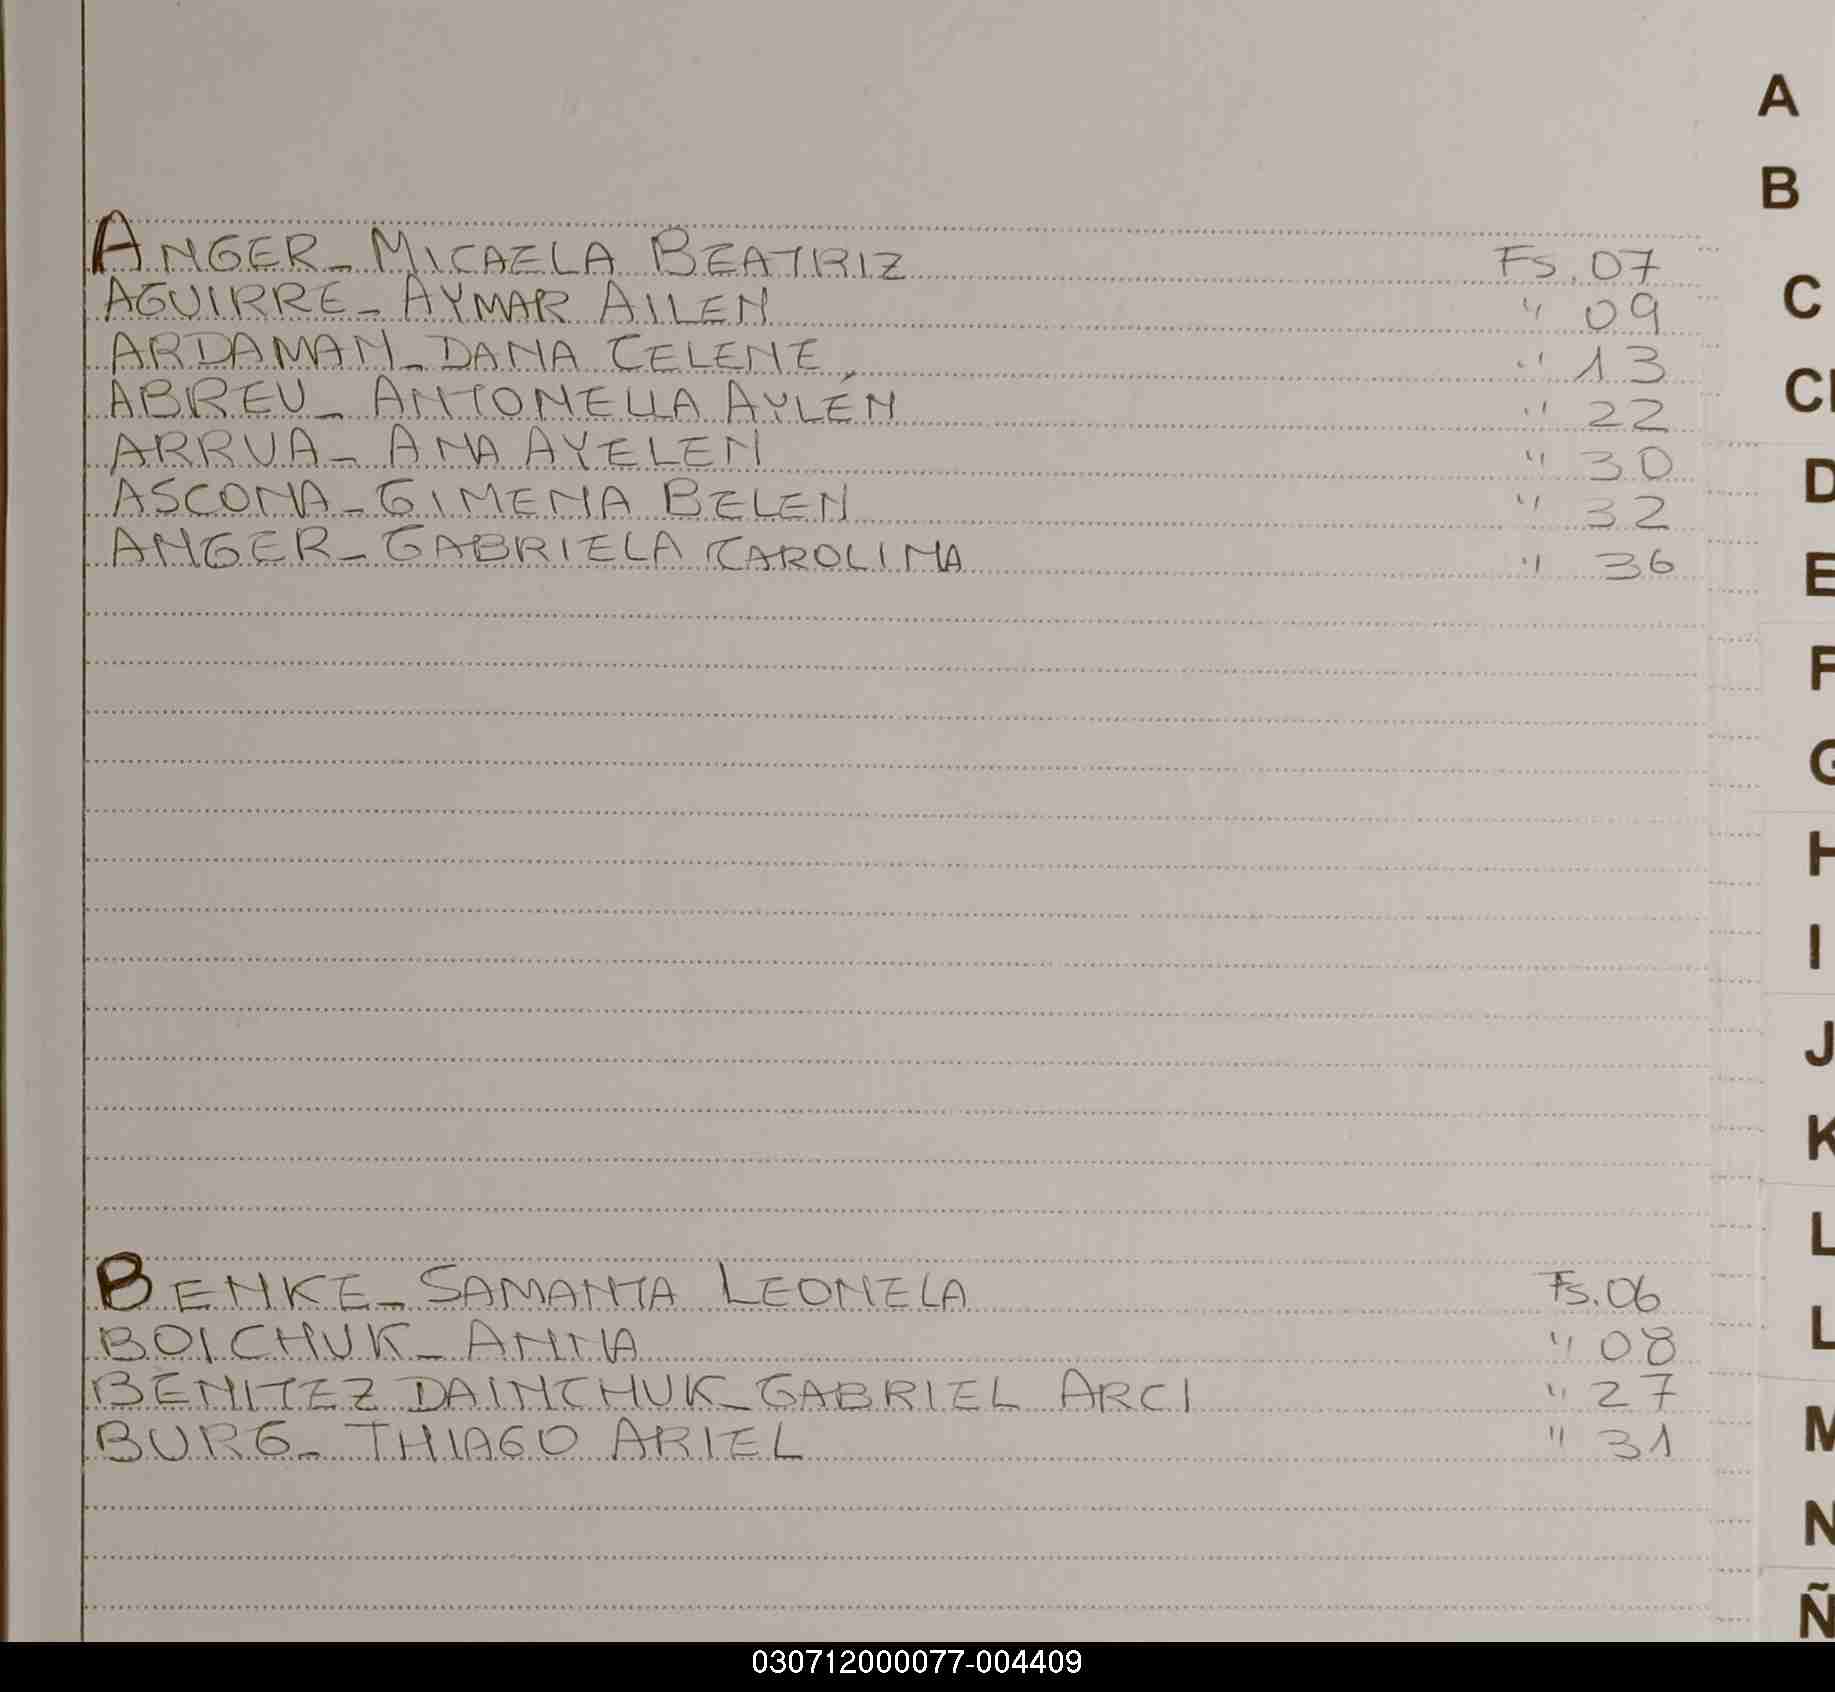 A
B
ANGER_ MICAELA BEATRIZ Fs. 07
AGUIRRE_ AYMAR AILEN " 09
C
ARDAMAN_ DANA CELENE " 13
ABREU_ ANTONELLA AYLÉN " 22
CH
ARRUA_ ANA AYELEN " 30
D
ASCONA_ GIMENA BELEN " 32
ANGER_ GABRIELA CAROLINA " 36
E
F
G
H
I
J
K
L
BENKE_ SAMANTA LEONELA Fs. 06
L
BOICHUK_ ANNA " 08
BENITEZ DAINCHUK_ GABRIEL ARCI " 27
M
BURG_ THIAGO ARIEL " 31
N
Ñ
030712000077-004409